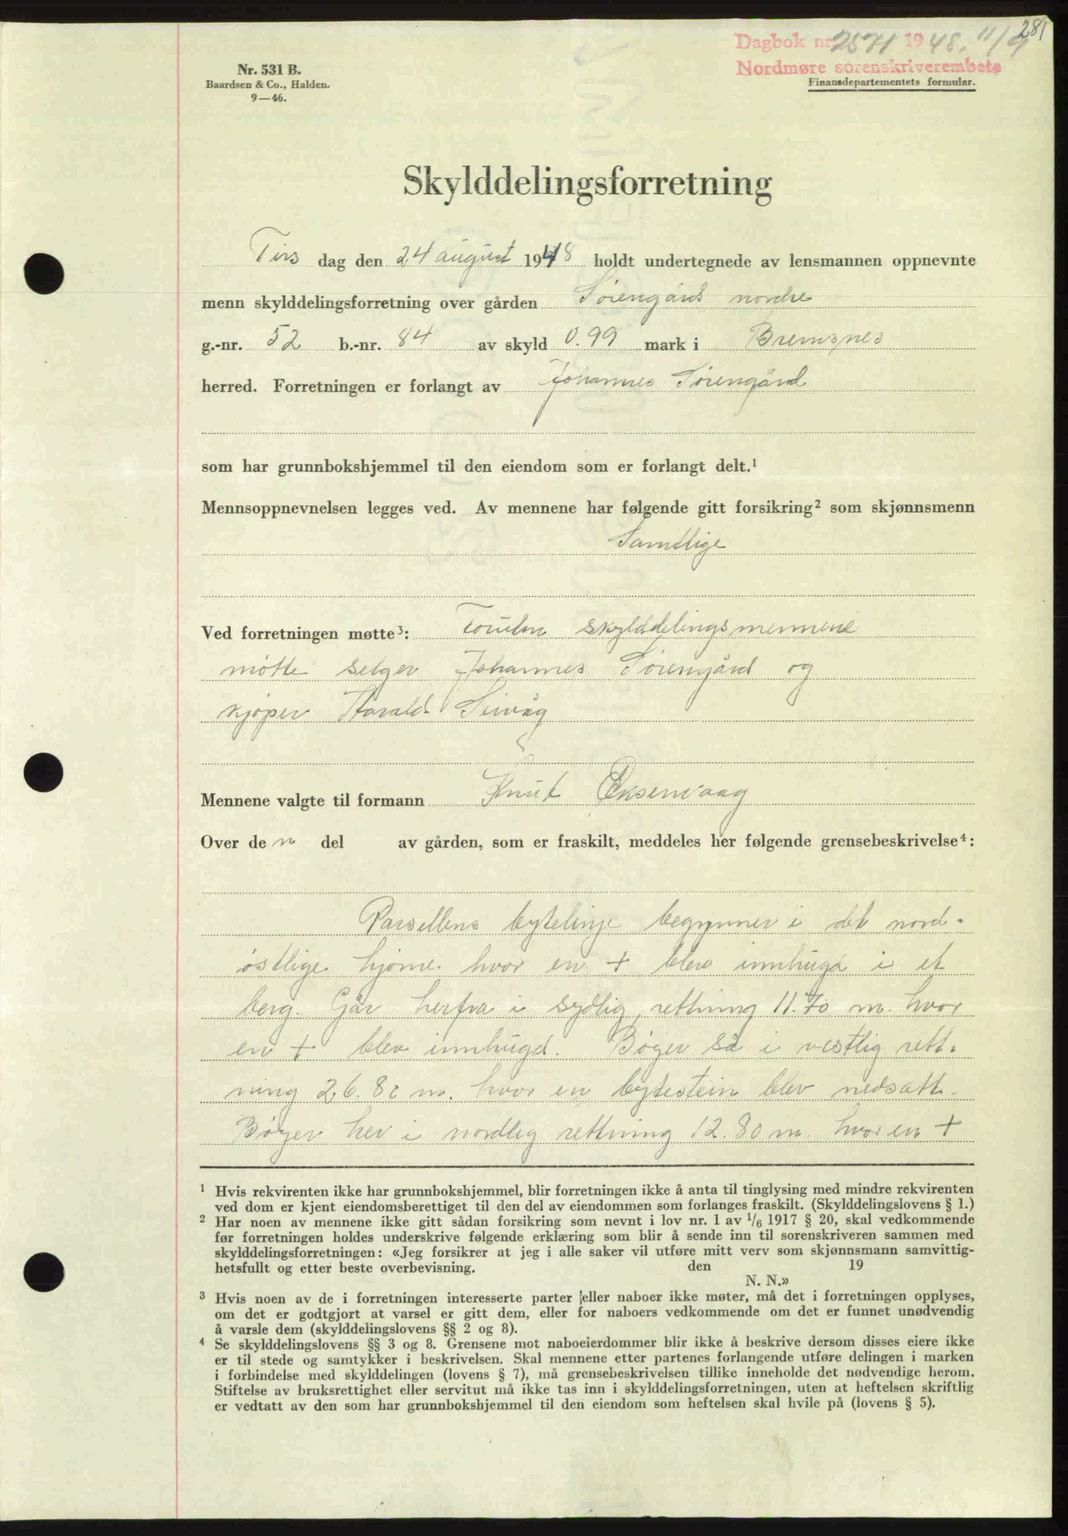 281
Dagbok nr. 2571 1948. 11/9
Nordmøre sorenskriverembete
Nr. 531 B.
Baardsen & Co., Halden.
9—46.
Finansdepartementets formular.
Skylddelingsforretning
Tirs dag den 24 august 1948 holdt undertegnede av lensmannen oppnevnte
menn skylddelingsforretning over gården Sørengård nordre
g.-nr. 52 b.-nr. 84 av skyld 0.99 mark i Bremsnes
herred. Forretningen er forlangt av Johannes Sørengård
som har grunnbokshjemmel til den eiendom som er forlangt delt.¹
Mennsoppnevnelsen legges ved. Av mennene har følgende gitt forsikring² som skjønnsmenn
Samtlige
Ved forretningen møtte³: Foruten skylddelingsmennene
møtte selger Johannes Sørengård og
kjøper Harald
Mennene valgte til formann Knut Øksenvaag
Over de n del av gården, som er fraskilt, meddeles her følgende grensebeskrivelse⁴:
Parsellens bytelinje begynner i det nord-
østlige hjørne hvor en + blev innhugd i et
berg. Går herfra i sydlig rettning 11.70 m. hvor
en + blev innhugd. Bøyer så i vestlig rett-
ning 26.80 m. hvor en bytestein blev nedsatt.
Bøyer her i nordlig rettning 12.80 m. hvor en +
¹ Hvis rekvirenten ikke har grunnbokshjemmel, blir forretningen ikke å anta til tinglysing med mindre rekvirenten
ved dom er kjent eiendomsberettiget til den del av eiendommen som forlanges fraskilt. (Skylddelingslovens § 1.)
² Har noen av mennene ikke gitt sådan forsikring som nevnt i lov nr. 1 av 1/6 1917 § 20, skal vedkommende
før forretningen holdes underskrive følgende erklæring som blir å sende inn til sorenskriveren sammen med
skylddelingsforretningen: «Jeg forsikrer at jeg i alle saker vil utføre mitt verv som skjønnsmann samvittig-
hetsfullt og etter beste overbevisning. den 19
N. N.»
³ Hvis noen av de i forretningen interesserte parter eller naboer ikke møter, må det i forretningen opplyses,
om det er godtgjort at varsel er gitt dem, eller for naboers vedkommende om det er funnet unødvendig
å varsle dem (skylddelingslovens §§ 2 og 8).
⁴ Se skylddelingslovens §§ 3 og 8. Grensene mot naboeierdommer blir ikke å beskrive dersom disses eiere ikke
er til stede og samtykker i beskrivelsen. Skal mennene etter partenes forlangende utføre delingen i marken
i forbindelse med skylddelingen (lovens § 7), må grensebeskrivelsen tillike inneholde det nødvendige herom.
Stiftelse av bruksrettighet eller servitut må ikke tas inn i skylddelingsforretningen, uten at heftelsen skriftlig
er vedtatt av den som har grunnbokshjemmel til den eiendom som heftelsen skal hvile på (lovens § 5).